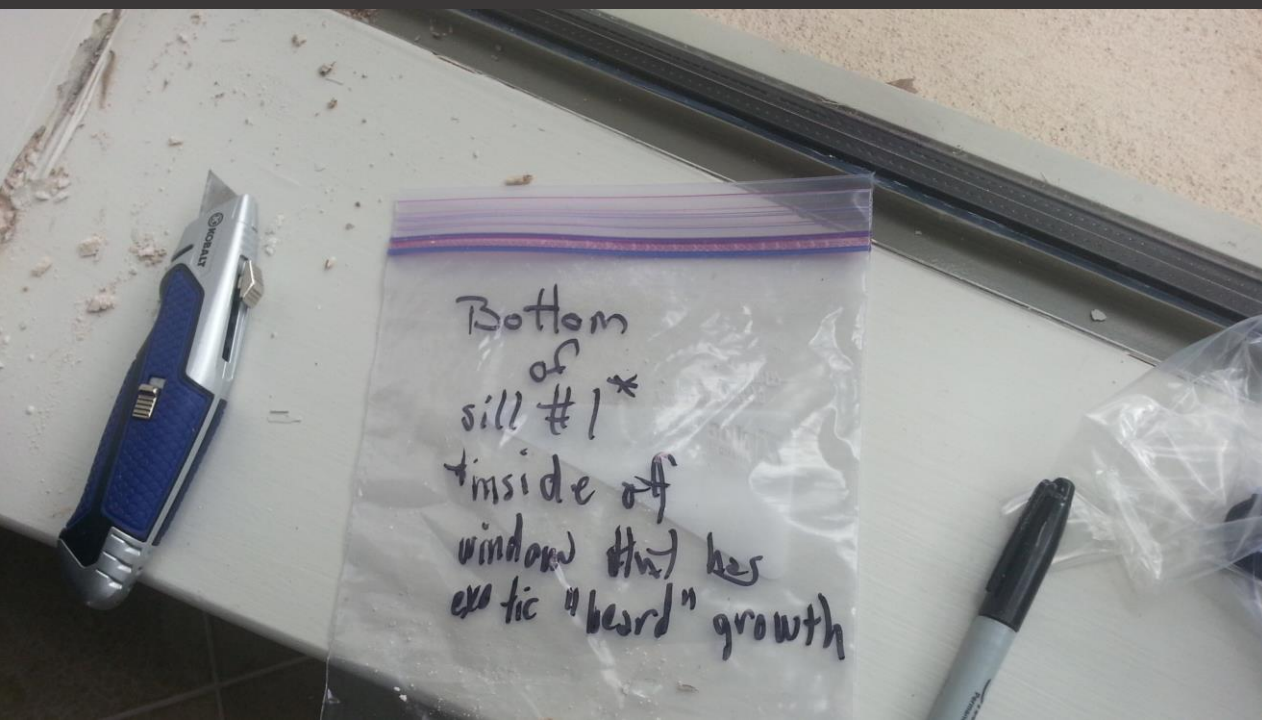 KOBALT
Bottom
of
sill #1*
*inside of
window that has
exotic "beard" growth